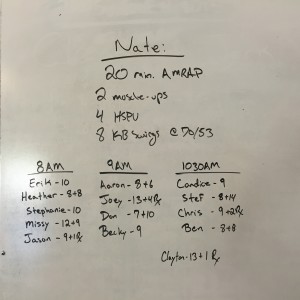 Nate:
20 min. AMRAP
2 muscle-ups
4 HSPU
8 KB swings @ 70/53
8AM
Erik - 10
Heather - 8+8
Stephanie - 10
Missy - 12+9
Jason - 9+1 Rx
9AM
Aaron - 8+6
Joey - 13+4 Rx
Don - 7+10
Becky - 9
1030AM
Candice - 9
Stef - 8+14
Chris - 9+2 Rx
Ben - 8+8
Clayton - 13+1 Rx